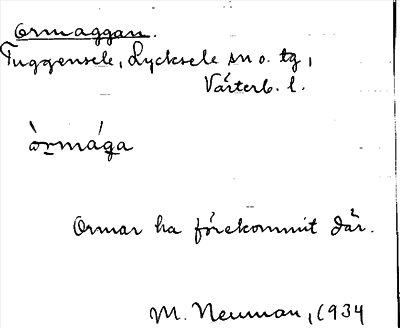 Ormaggan.
Tuggensele, Lycksele sn o. tg,
Västerb. l.
òrmága
Ormar ha förekommit där.
M. Neuman, 1934